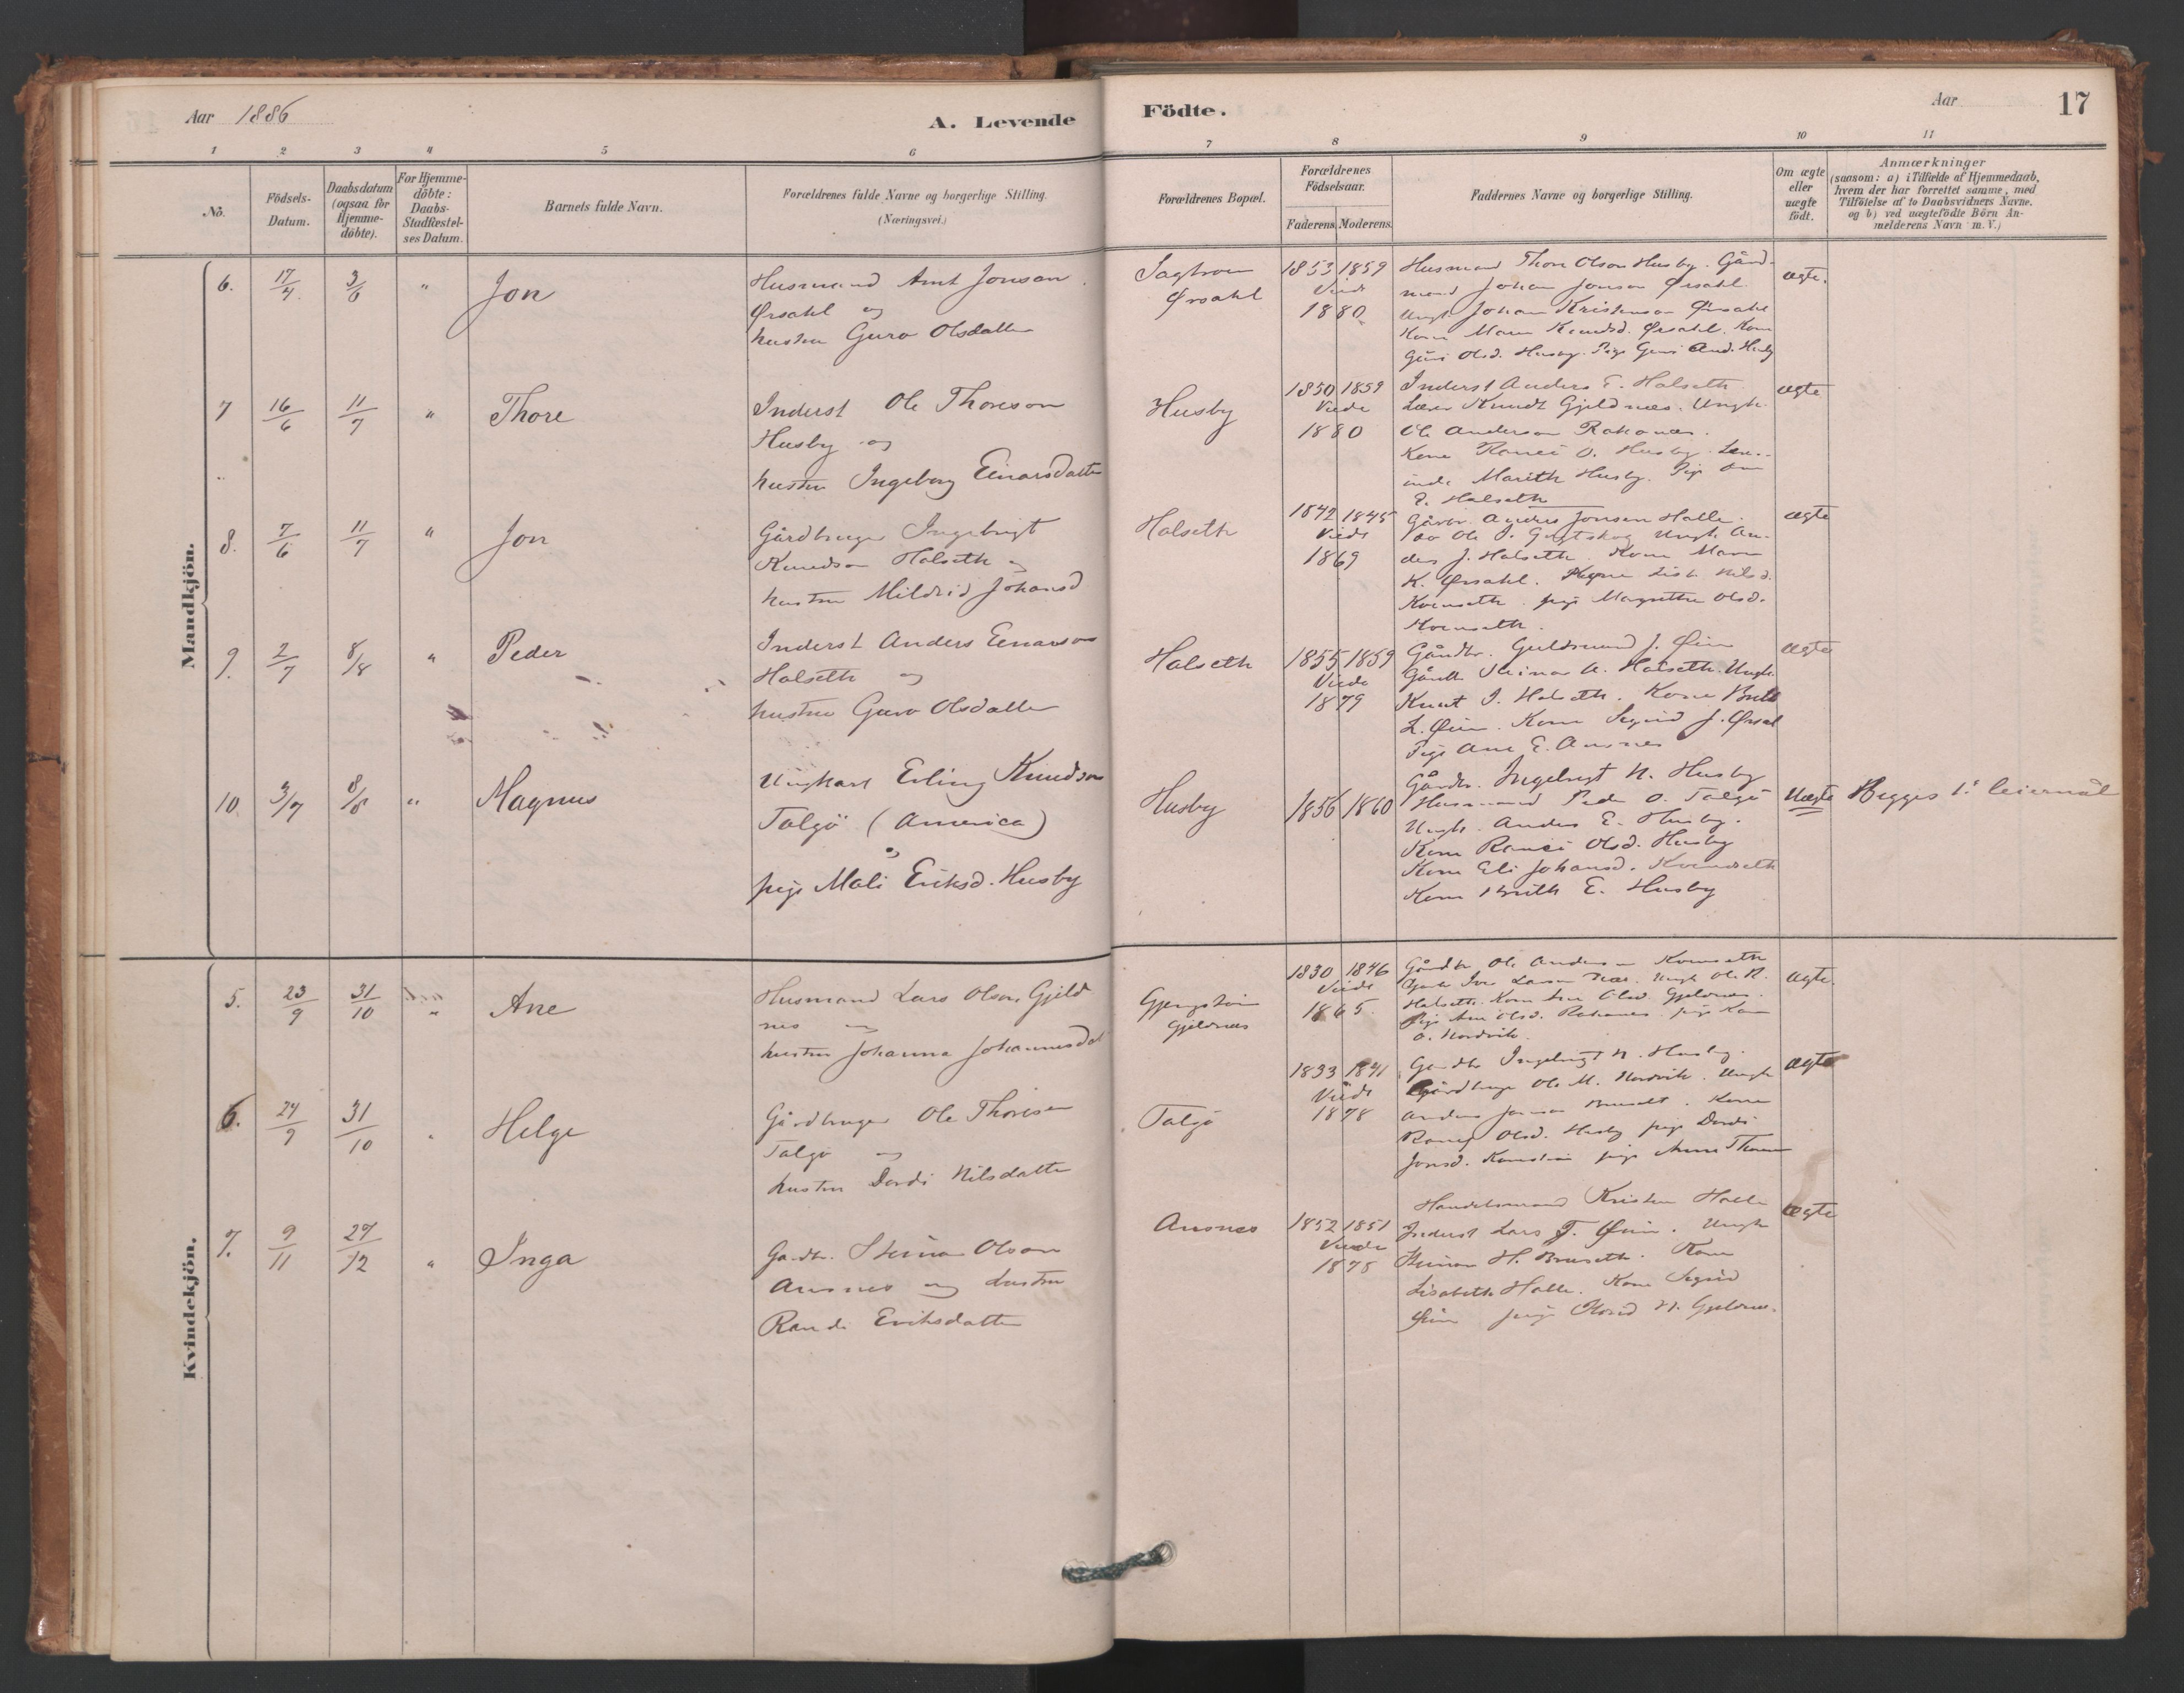 Aar 1886
A. Levende
Födte.
Aar
17
1 2 3 4 5 6 7 8 9 10 11
No.
Födsels-
Datum.
Daabsdatum
(ogsaa for
Hjemme-
döbte).
For Hjemme-
döbte:
Daabs-
Stadfæstel-
ses Datum.
Barnets fulde Navn.
Forældrenes fulde Navne og borgerlige Stilling.
(Næringsvei.)
Forældrenes Bopæl.
Forældrenes
Födselsaar.
Faderens. Moderens.
Faddernes Navne og borgerlige Stilling.
Om ægte
eller
uægte
födt.
Anmærkninger
(saasom: a) i Tilfælde af Hjemmedaab,
hvem der har forrettet samme, med
Tilföielse af to Daabsvidners Navne.
og b) ved uægtefödte Börn An-
melderens Navn m. V.)
Mandkjön.
6. 17/4 3/6 " Jon
Husmand Arnt Jonson
Ørsahl og
hustru Guro Olsdatter
Ørsahl
1853 1859
Viede
1880
Husmand Thore Olson Husby. Gård-
mand Johan Jonson Ørsahl.
Ungk. Johan Kristenson Ørsahl
Kone Maren Knudsd. Ørsahl. Kone
Guri Olsd. Husby. Pige Guri And. Husby
ægte.
7 16/6 11/7 " Thore
Inderst Ole Thoreson
Husby og
hustru Ingeborg Einarsdatter
Husby
1850 1859
Viede
1880
Inderst Anders E. Halseth.
Lærer Knudt Gjeldnæs. Ungk.
Ole Anderson Rakanæs.
Kone Ranei O. Husby.
Marith Husby. Pige
E. Halseth
ægte
8. 7/6 11/7 " Jon
Gårdbruger Ingebrigt
Knudson Halseth og
hustru Mildrid Johansd
Halseth
1842 1845
Viede
1869
Gårdbr. Anders Jonsen Halle.
do Ole Ungk. An-
ders J. Halseth. Kone Maren
K. Ørsahl. Lisb. Nilsd.
Kvenseth. pige Magrethe Olsd.
Kvenseth.
ægte
9. 2/7 8/8 " Peder
Inderst Anders Einarson
Halseth og
hustru Guro Olsdatter
Halseth
1855 1859
Viede
1879
Gårdbr. Guldmand J. Øien
Gårdb. Steinar A. Halseth. Ungk.
Knut I. Halseth. Kone Brit
L. Øien. Kone Segrid J. Ørsal
Pige Ane E. Ansnes
ægte
10 3/7 8/8 " Magnus
Ungkarl Erling Knudson
Talgö (America)
og
pige Mali Eriksd. Husby
Husby
1856 1860
Gårdbr. Ingebrigt N. Husby
Husmand Peder O. Talgö
Ungk. Anders E. Husby.
Kone Ranei Olsd. Husby
Kone Eli Johansd. Kvenseth
Kone Brith E. Husby
Uægte
Begges 1ste leiermål
Kvindekjön.
5. 23/9 31/10 " Ane
Husmand Lars Olson Gjeld
nes og
hustru Johanna Johannesdat
Gjeldnæs
1830 1846
Viede
1865.
Gårdbr Ole Anderson Kvenseth
Iver Larsen Ungk Ole K.
Halseth. Kone Olsd. Gjeldnæs.
Pige Ane Olsd. Rakanes. pige
O. Nordvik.
ægte.
6. 24/9 31/10 " Helge
Gårdbruger Ole Thoresen
Talgö og
hustru Dordi Nilsdatter
Talgö
1833 1841
Viede
1878
Gårdbr Ingebrigt N. Husby.
Gårdbruger Ole M. Nordvik. Ungk
Anders Jonson Kone
Ranei Olsd. Husby pige Dordi
Jonsd. pige Anne Thores
ægte
7. 9/11 27/12 " Inga
Gardbr. Steinar Olson
Ansnes og hustru
Randi Eriksdatter
Ansnes
1852 1851
Viede
1878
Handelsmand Kristen Halle
Inderst Lars T. Øien. Ungk
Steinar H. Bruseth. Kone
Lisabeth Halle. Kone Segrid
Øien pige Olovid N. Gjeldnes.
ægte